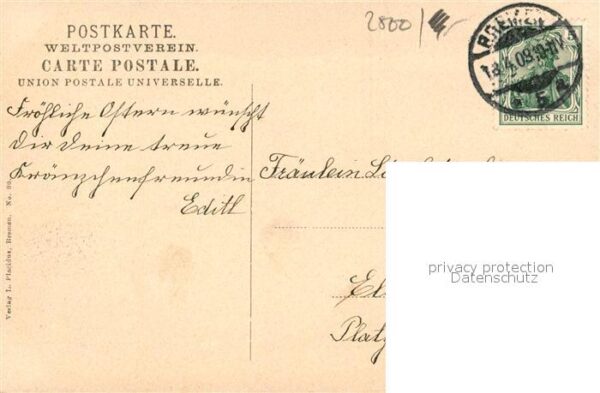 2800
POSTKARTE.
WELTPOSTVEREIN.
CARTE POSTALE.
UNION POSTALE UNIVERSELLE.
BREMEN
5
DEUTSCHES REICH
Fröhliche Ostern wünscht
Dir Deine treue
Kränzchenfreundin
Edith
Fräulein
Platz
Verlag L. Placidus, Bremen. No.
privacy protection
Datenschutz